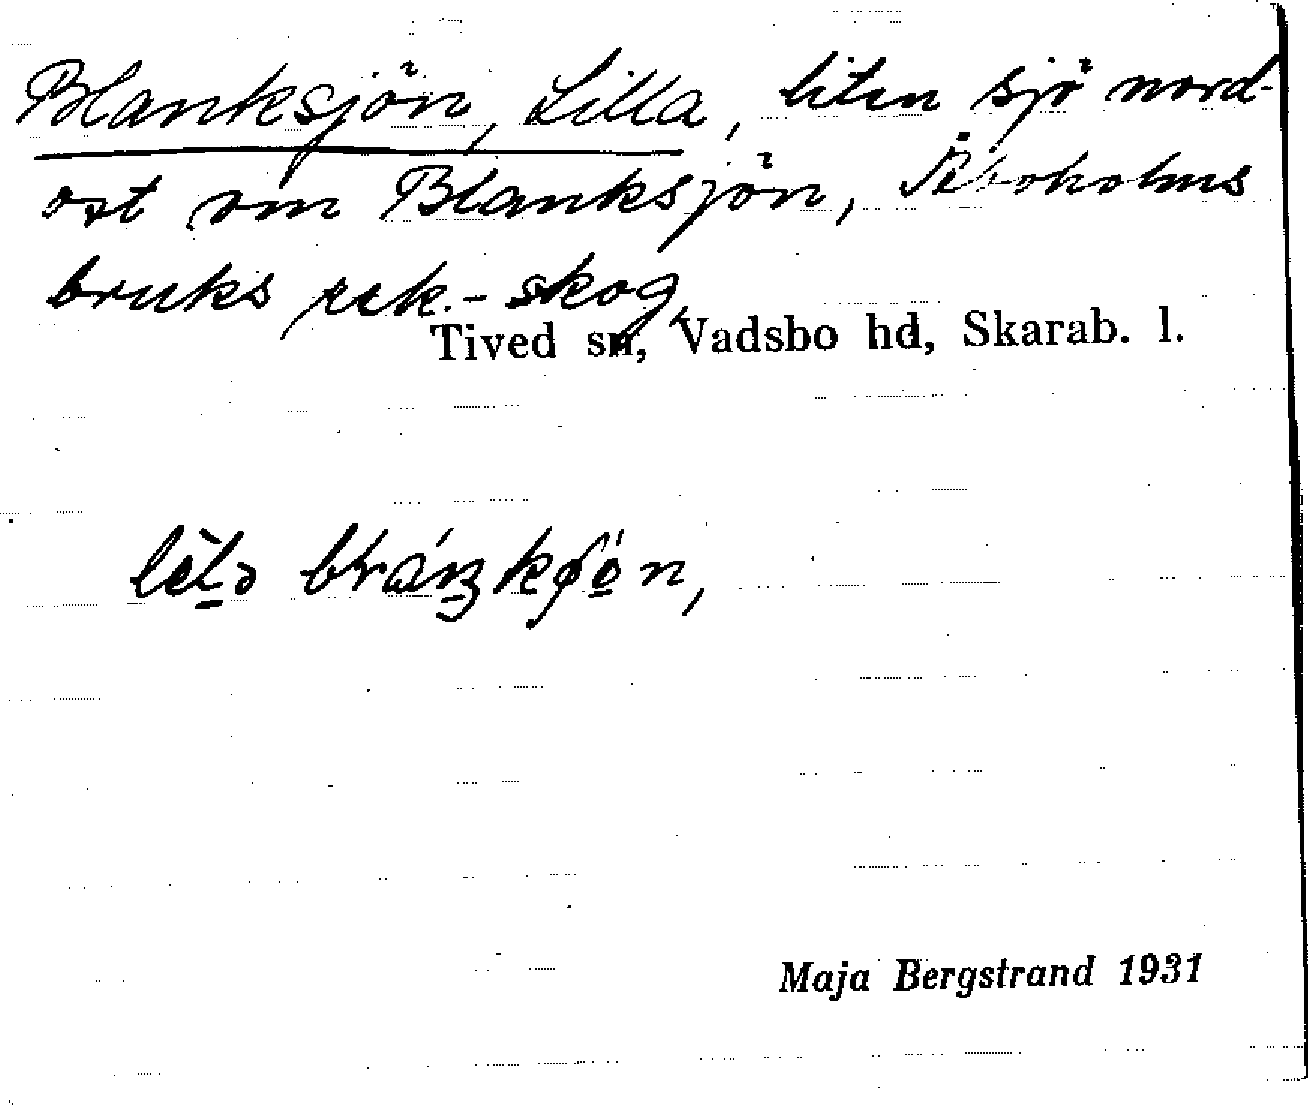 Blanksjön, Lilla, liten sjö nord-
ost om Blanksjön, Åboholms
bruks rek.-skog,
Tived sn, Vadsbo hd, Skarab. l.
Maja Bergstrand 1931